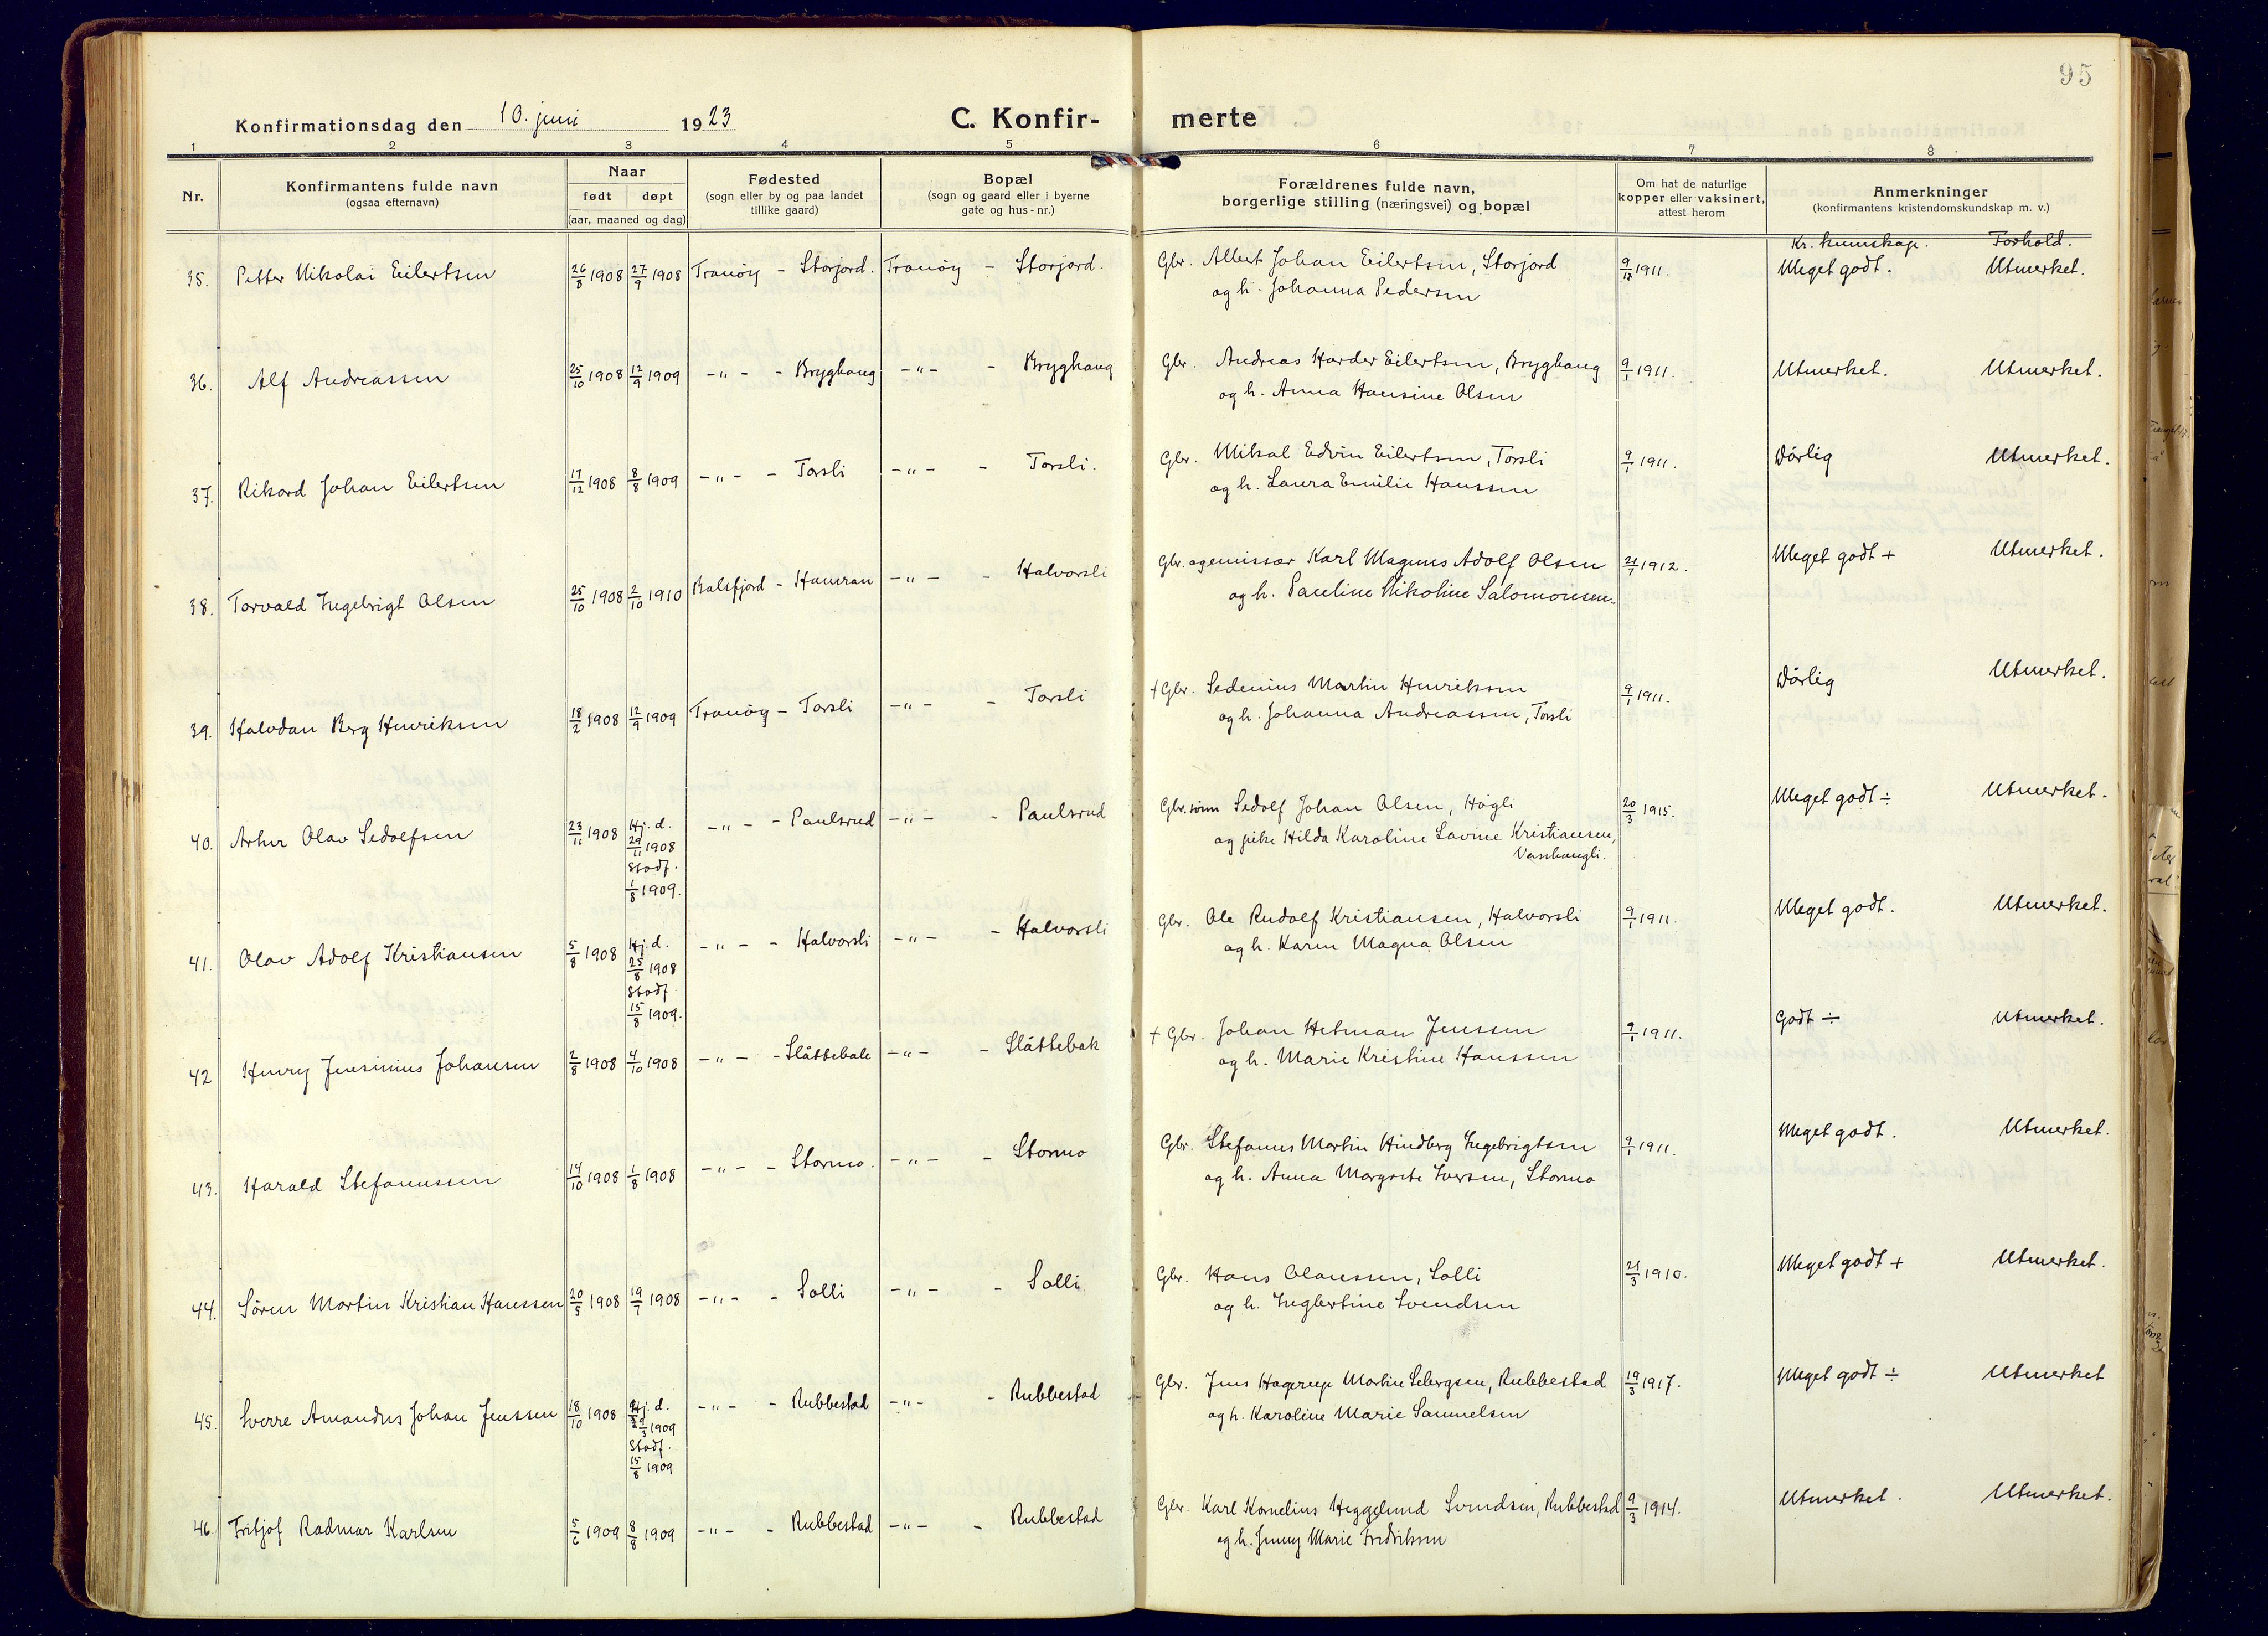 95
Konfirmationsdag den 10. juni 1923 C. Konfir- merte
1 2 3 4 5 6 7 8
Nr. Konfirmantens fulde navn (ogsaa efternavn) Naar født døpt (aar, maaned og dag) Fødested (sogn eller by og paa landet tillike gaard) Bopæl (sogn og gaard eller i byerne gate og hus-nr.) Forældrenes fulde navn, borgerlige stilling (næringsvei) og bopæl Om hat de naturlige kopper eller vaksinert, attest herom Anmerkninger (konfirmantens kristendomskundskap m. v.)
Kr. kunnskap. Forhold.
35. Petter Nikolai Eilertsen 26/8 1908 27/9 1908 Tranöy - Storjord. Tranöy - Storjord. Gbr. Albert Johan Eilertsen, Storjord 9/12 1911. Meget godt. Utmerket.
og h. Johanna Pedersen
36. Alf Andreassen 25/10 1908 12/9 1909 -"- - Brygghaug -"- - Brygghaug Gbr. Andreas Harder Eilertsen, Brygghaug 9/1 1911. Utmerket. Utmerket.
og h. Anna Hansine Olsen
37. Rikard Johan Eilertsen 17/12 1908 8/8 1909 -"- - Torsli -"- - Torsli. Gbr. Mikal Edvin Eilertsen, Torsli 9/1 1911. Dårlig Utmerket.
og h. Laura Emilie Hanssen
38. Torvald Ingebrigt Olsen 25/10 1908 2/10 1910 Balsfjord - Hamran -"- - Halvorsli Gbr. og emissær Karl Magnus Adolf Olsen 21/7 1912. Meget godt + Utmerket.
og h. Pauline Nikoline Salomonsen.
39. Halvdan Berg Henriksen 18/2 1908 12/9 1909 Tranöy - Torsli -"- - Torsli + Gbr. Sedenius Martin Henriksen 9/1 1911. Dårlig Utmerket.
og h. Johanna Andreassen, Torsli
40. Artur Olav Sedolfsen 23/11 1908 Hj. d. 29/11 1908 Stadf. 1/8 1909. -"- - Paulsrud -"- - Paulsrud Gbr. sønn Sedolf Johan Olsen, Högli 20/3 1915. Meget godt ÷ Utmerket.
og pike Hilda Karoline Lovine Kristiansen,
Vasshaugli.
41. Olav Adolf Kristiansen 5/8 1908 Hj. d. 25/8 1908 Stadf. 15/8 1909. -"- - Halvorsli -"- - Halvorsli Gbr. Ole Rudolf Kristiansen, Halvorsli 9/1 1911. Meget godt. Utmerket.
og h. Karen Magna Olsen
42 Henry Jensinius Johansen 2/8 1908 4/10 1908 -"- - Slåttebak -"- - Slåttebak + Gbr. Johan Hetman Jenssen 9/1 1911. Godt ÷ Utmerket.
og h. Marie Kristine Hanssen
43. Harald Stefanussen 14/10 1908 1/8 1908 -"- - Stormo. -"- - Stormo Gbr. Stefanus Martin Hindberg Ingebrigtsen 9/1 1911. Meget godt. Utmerket.
og h. Anna Margrete Iversen, Stormo
44. Sören Martin Kristian Hanssen 20/5 1908 19/7 1908 -"- - Solli -"- - Solli Gbr. Hans Olaussen, Solli 21/3 1910. Meget godt + Utmerket.
og h. Inglertine Svendsen
45. Sverre Amandus Johan Jenssen 18/10 1908 Hj. d. 1909 Stadf. 15/8 1909 -"- - Rubbestad -"- - Rubbestad Gbr. Jens Hagerup Martin Sebergsen, Rubbestad 19/3 1917. Meget godt ÷ Utmerket
og h. Karoline Marie Samuelsen
46. Fritjof Radmar Karlsen 5/6 1909 8/8 1909 -"- - Rubbestad -"- - Rubbestad Gbr. Karl Kornelius Heggelund Svendsen, Rubbestad 9/3 1914. Utmerket. Utmerket.
og h. Jenny Marie Fredriksen